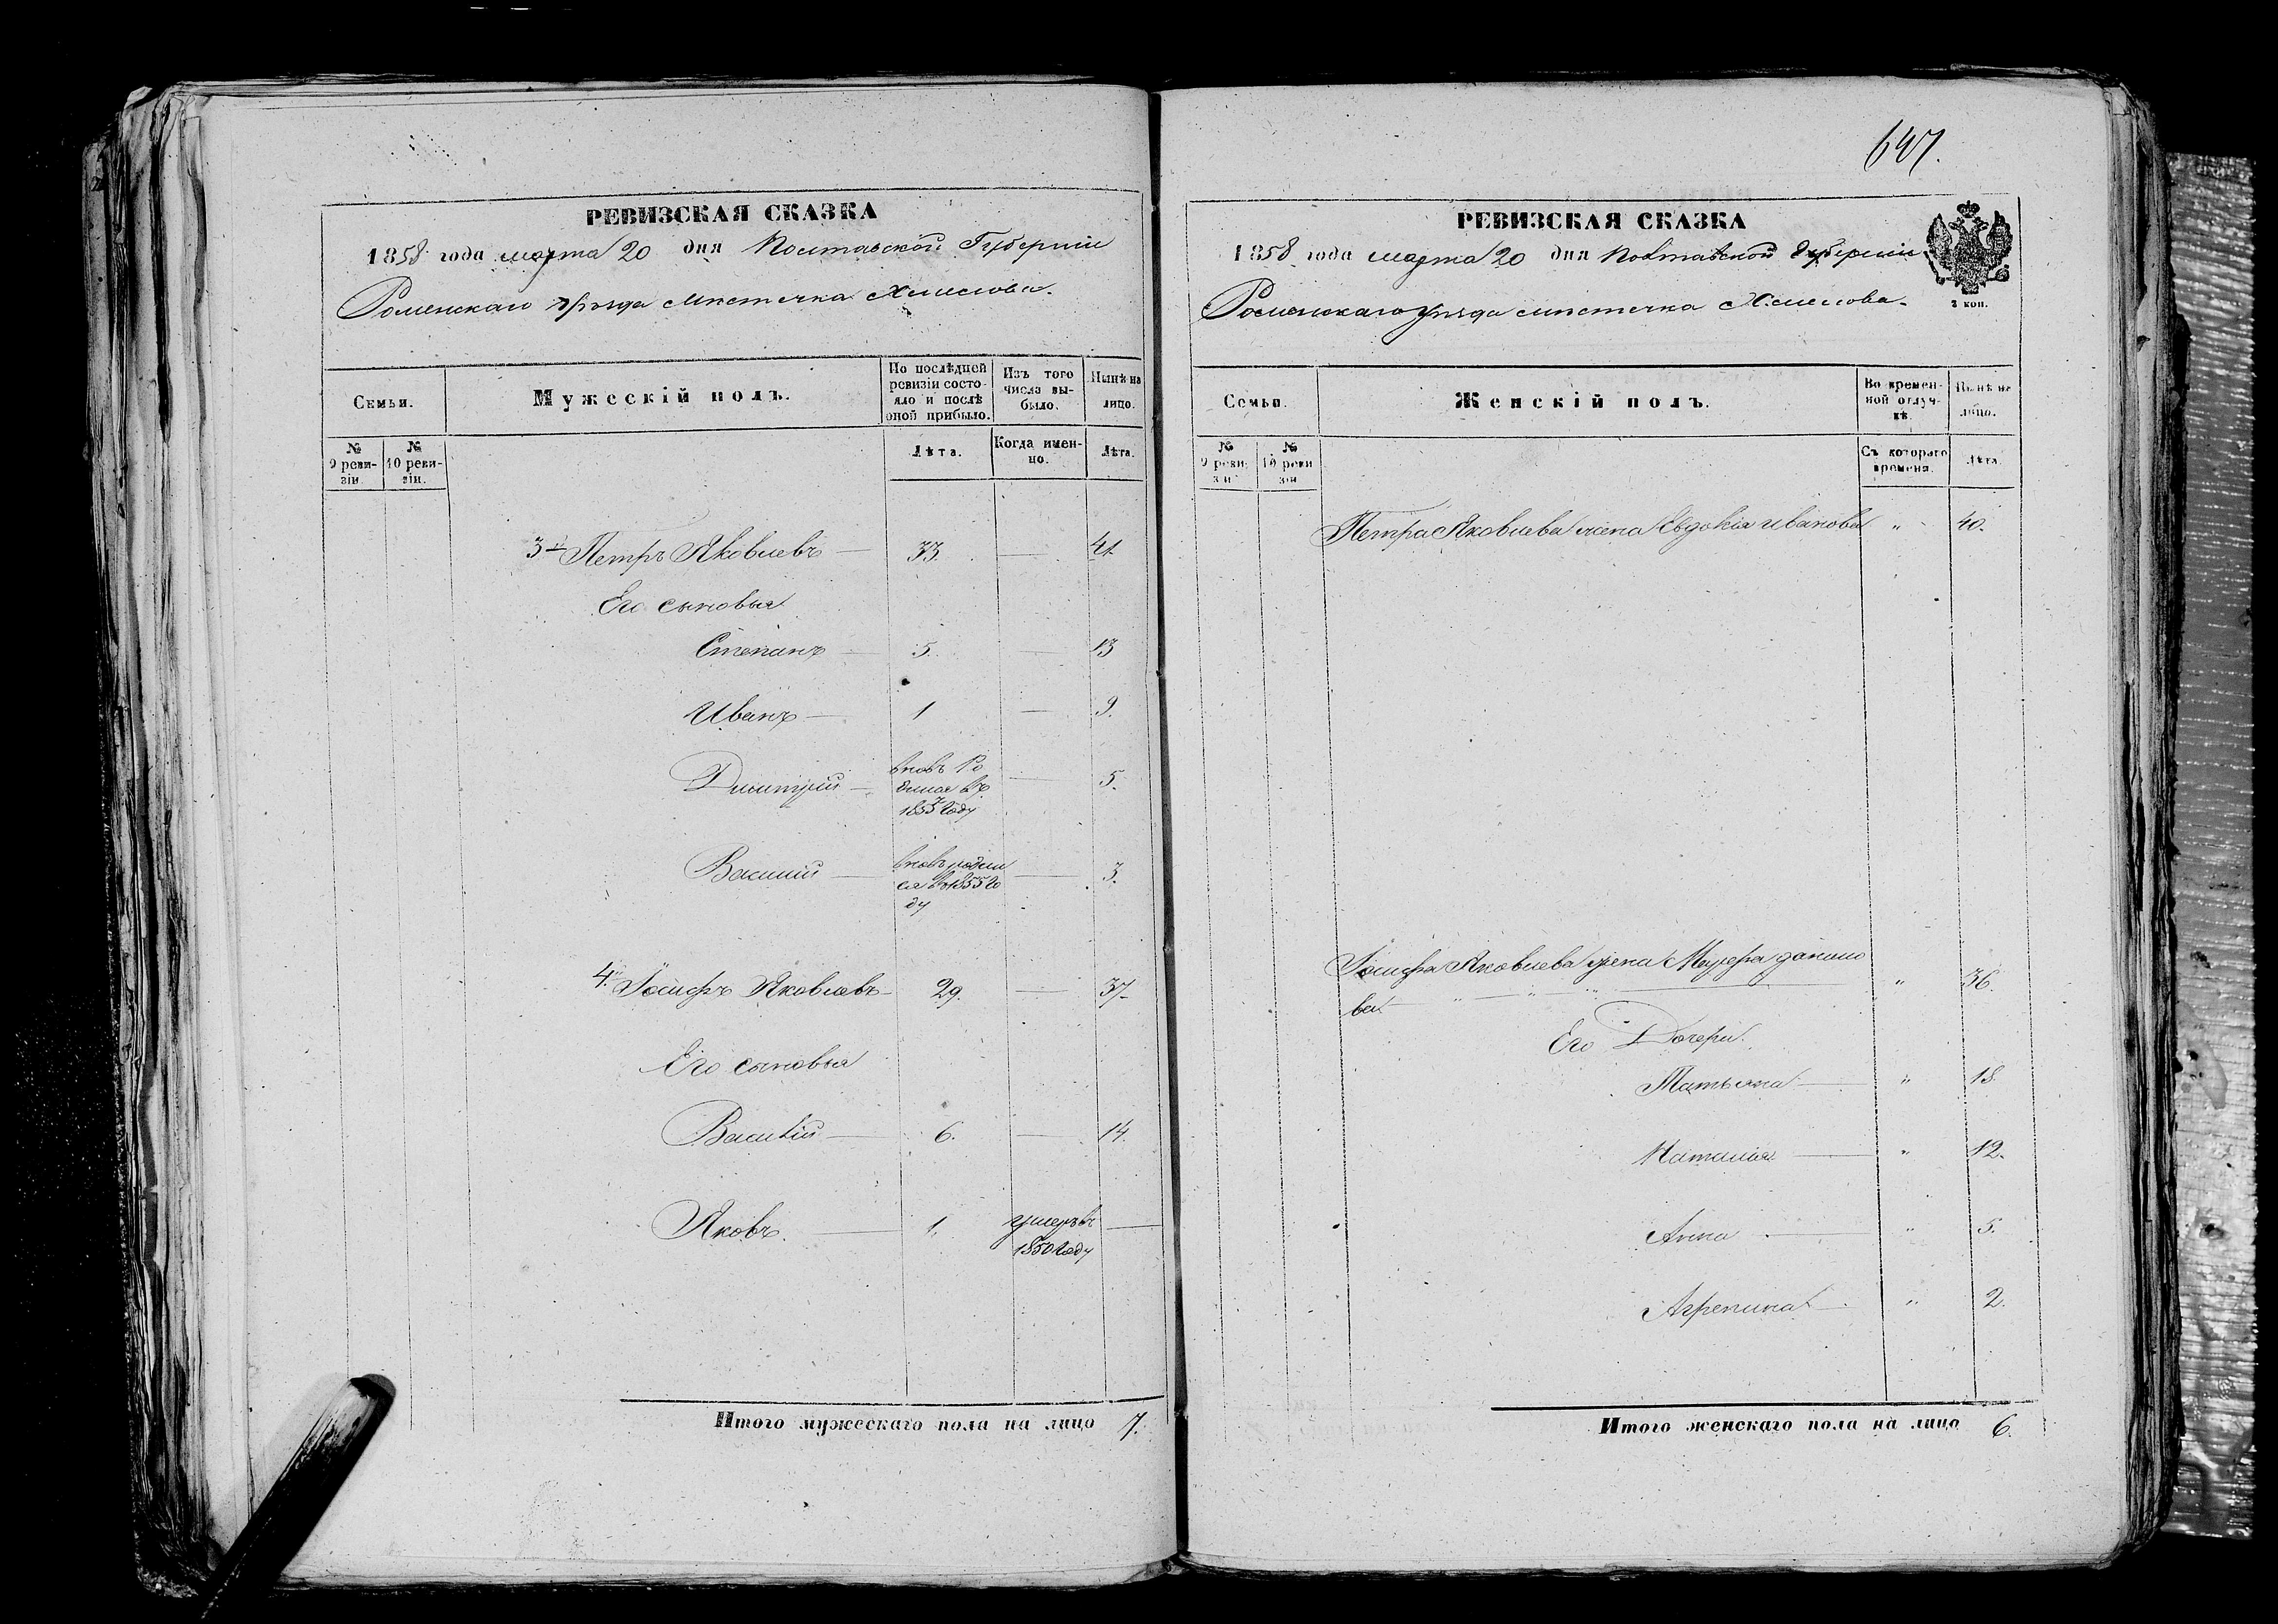 РЕВИЗСКАЯ СКАЗКА
1858 года марта 20 дня Полтавской Губерніи
Роменскаго уѣзда мѣстечка Хмелова.
Семьи.
Мужескій полъ.
По послѣдней ревизіи состо-
яло и послѣ оной прибыло.
Изъ того числа вы-
было.
Нынѣ на лицо.
№ 9 реви-
зіи.
№ 10 реви-
зіи.
Лѣта.
Когда имен-
но.
Лѣта.
3й Петръ Яковлевъ — 33. — 41
Его сыновья
Степанъ — 5. — 13
Иванъ — 1 — 9.
Дмитрій — вновь Ро — 5.
дился въ
1853 Году
Василій — вновь родил — 3.
ся въ 1855 го
ду
4. Іосифъ Яковлевъ — 29. — 37
Его сыновья
Василій — 6. — 14.
Яковъ. — 1. умеръ въ —
1850 Году
Итого мужескаго пола на лицо 7.
647.
РЕВИЗСКАЯ СКАЗКА
1858 года марта 20 дня Полтавской Губерніи
Роменскаго уѣзда мѣстечка Хмелова.
2 коп.
Семьи.
Женскій полъ.
Во времен-
ной отлуч-
кѣ.
Нынѣ на лицо.
№ 9 реви
зіи
№ 10 реви
зіи
Съ котораго
времени.
Лѣта.
Петра Яковлева жена Евдокія Иванова " 40.
Іосифа Яковлева жена Марфа данило
ва " 36.
Его Дочери.
Татьяна — " 18.
Наталія — " 12.
Анна — " 5.
Агрепина — " 2.
Итого женскаго пола на лицо 6.